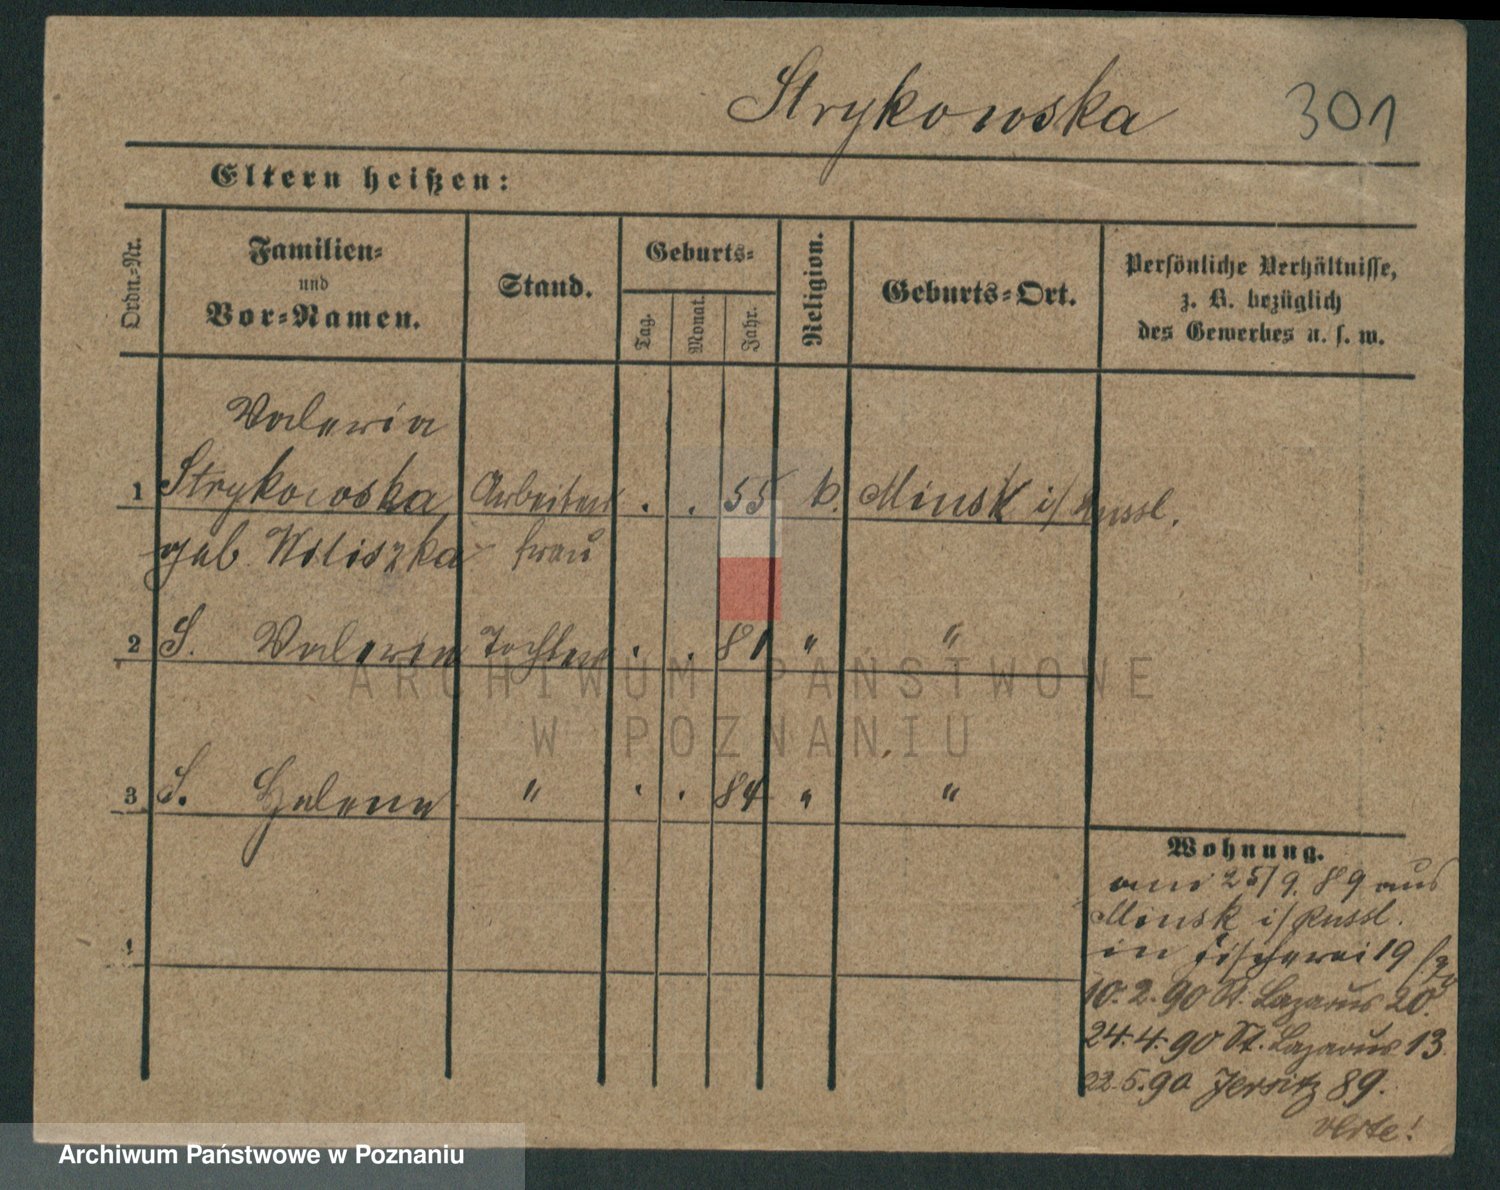 Strykowska 301
Eltern heißen:
Ordn.=Nr.
Familien=
und
Vor=Namen.
Stand.
Geburts=
Tag.
Monat.
Jahr.
Religion.
Geburts=Ort.
Persönliche Verhältnisse,
z. B. bezüglich
des Gewerbes u. s. w.
Valeria
1 Strykowska Arbeiter . . 55 k. Minsk i/ Russl.
geb. Wiliszka frau
2 S. Valeria Tochter . . 81 " "
3 S. Helene " . . 84 " "
4
Wohnung.
am 25/9. 89 aus
Minsk i/ Russl.
in Fischerei 19
10.2.90 St. Lazarus 20.
24.4.90 St. Lazarus 13.
22.5.90 Jersitz 89.
verte!
ARCHIWUM PAŃSTWOWE
W POZNANIU
Archiwum Państwowe w Poznaniu